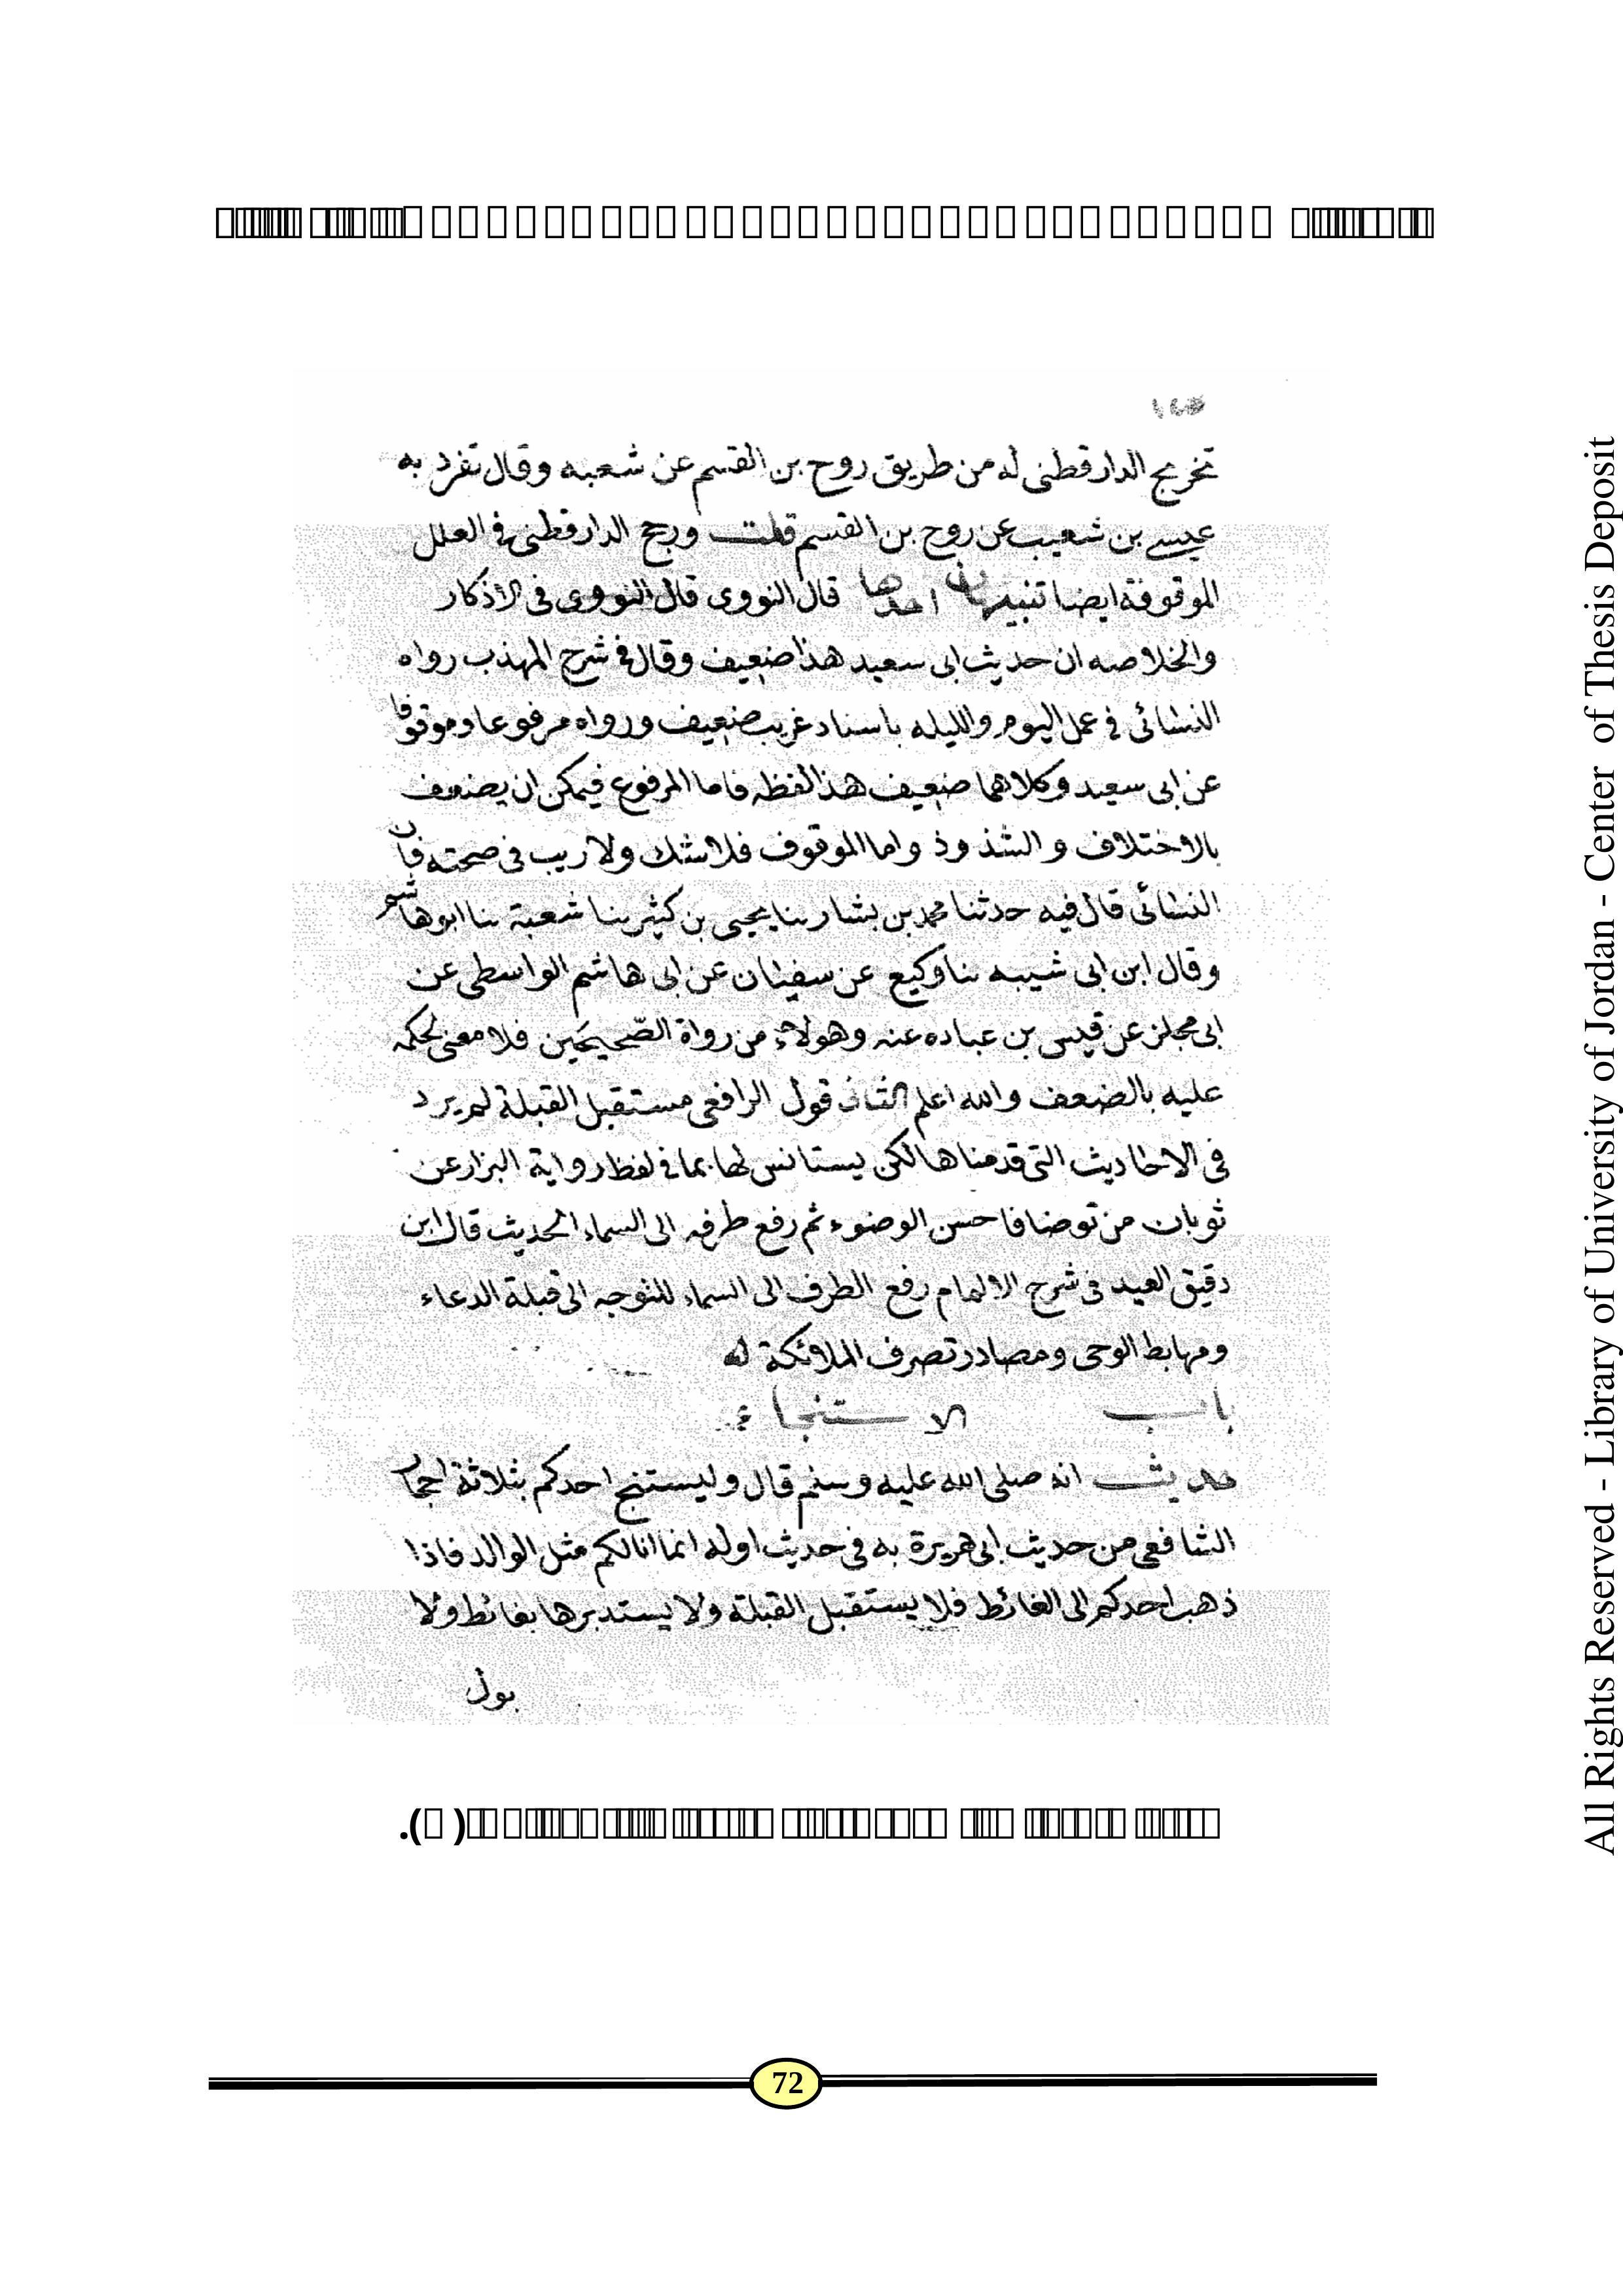 تخريج الدارقطنى له من طريق روح بن القسم عن شعبه وقال تفرد به
عيسى بن شعيب عن روح بن القسم قلت ورجح الدارقطنى في العلل
الموقوفة ايضا تنبيهان احدها قال النووى قال النووى في الاذكار
والخلاصه ان حديث ابى سعيد هذا ضعيف وقال في شرح المهذب رواه
النسائى في عمل اليوم والليله باسناد غريب ضعيف ورواه مرفوعا وموقوفا
عن ابى سعيد وكلاهما ضعيف هذا لفظه فاما المرفوع فيمكن ان يضعف
بالاختلاف والشذوذ واما الموقوف فلا شك ولا ريب في صحته فان
النسائى قال فيه حدثنا محمد بن بشار ثنا يحيى بن كثير ثنا شعبة ثنا ابو هاشم
وقال ابن ابى شيبه ثنا وكيع عن سفيان عن ابى هاشم الواسطى عن
ابى مجلز عن قيس بن عباده عنه وهولاء من رواة الصحيحين فلا معنى لحكمه
عليه بالضعف والله اعلم الثانى قول الرافعى مستقبل القبلة لم يرد
في الاحاديث التى قدمناها لكن يستانس لها بما في لفظ رواية البزار عن
ثوبان من توضا فاحسن الوضوء ثم رفع طرفه الى السماء الحديث قال ابن
دقيق العيد في شرح الالمام رفع الطرف الى السماء للتوجه الى قبلة الدعاء
ومهابط الوحى ومصادر تصرف الملائكة
باب الاستنجاء
حديث انه صلى الله عليه وسلم قال وليستنج احدكم بثلاثة احجار
الشافعى من حديث ابى هريرة به في حديث اوله انما انا لكم مثل الوالد فاذا
ذهب احدكم الى الغائط فلا يستقبل القبلة ولا يستدبرها بغائط ولا
بول
72
All Rights Reserved - Library of University of Jordan - Center of Thesis Deposit